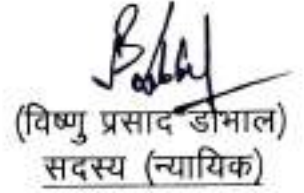 (विष्णु प्रसाद डोभाल)
सदस्य (न्यायिक)